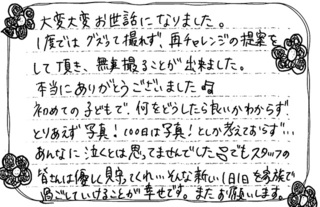 大変大変お世話になりました。
1度ではグズって撮れず、再チャレンジの提案を
して頂き、無事撮ることが出来ました。
本当にありがとうございました
初めての子どもで、何をどうしたら良いかわからず
とりあえず写真！100日は写真！としか考えておらず…
あんなに泣くとは思ってませんでした でもスタッフの
皆さんは優しく見守ってくれ…そんな新しい1日1日を家族で
過ごしていけることが幸せです。またお願いします。